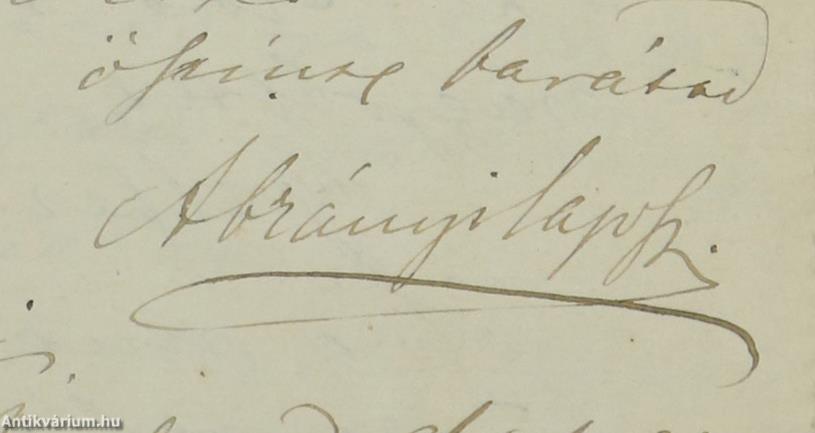 őszinte barátod
Ábrányi Lajos
Antikvárium.hu